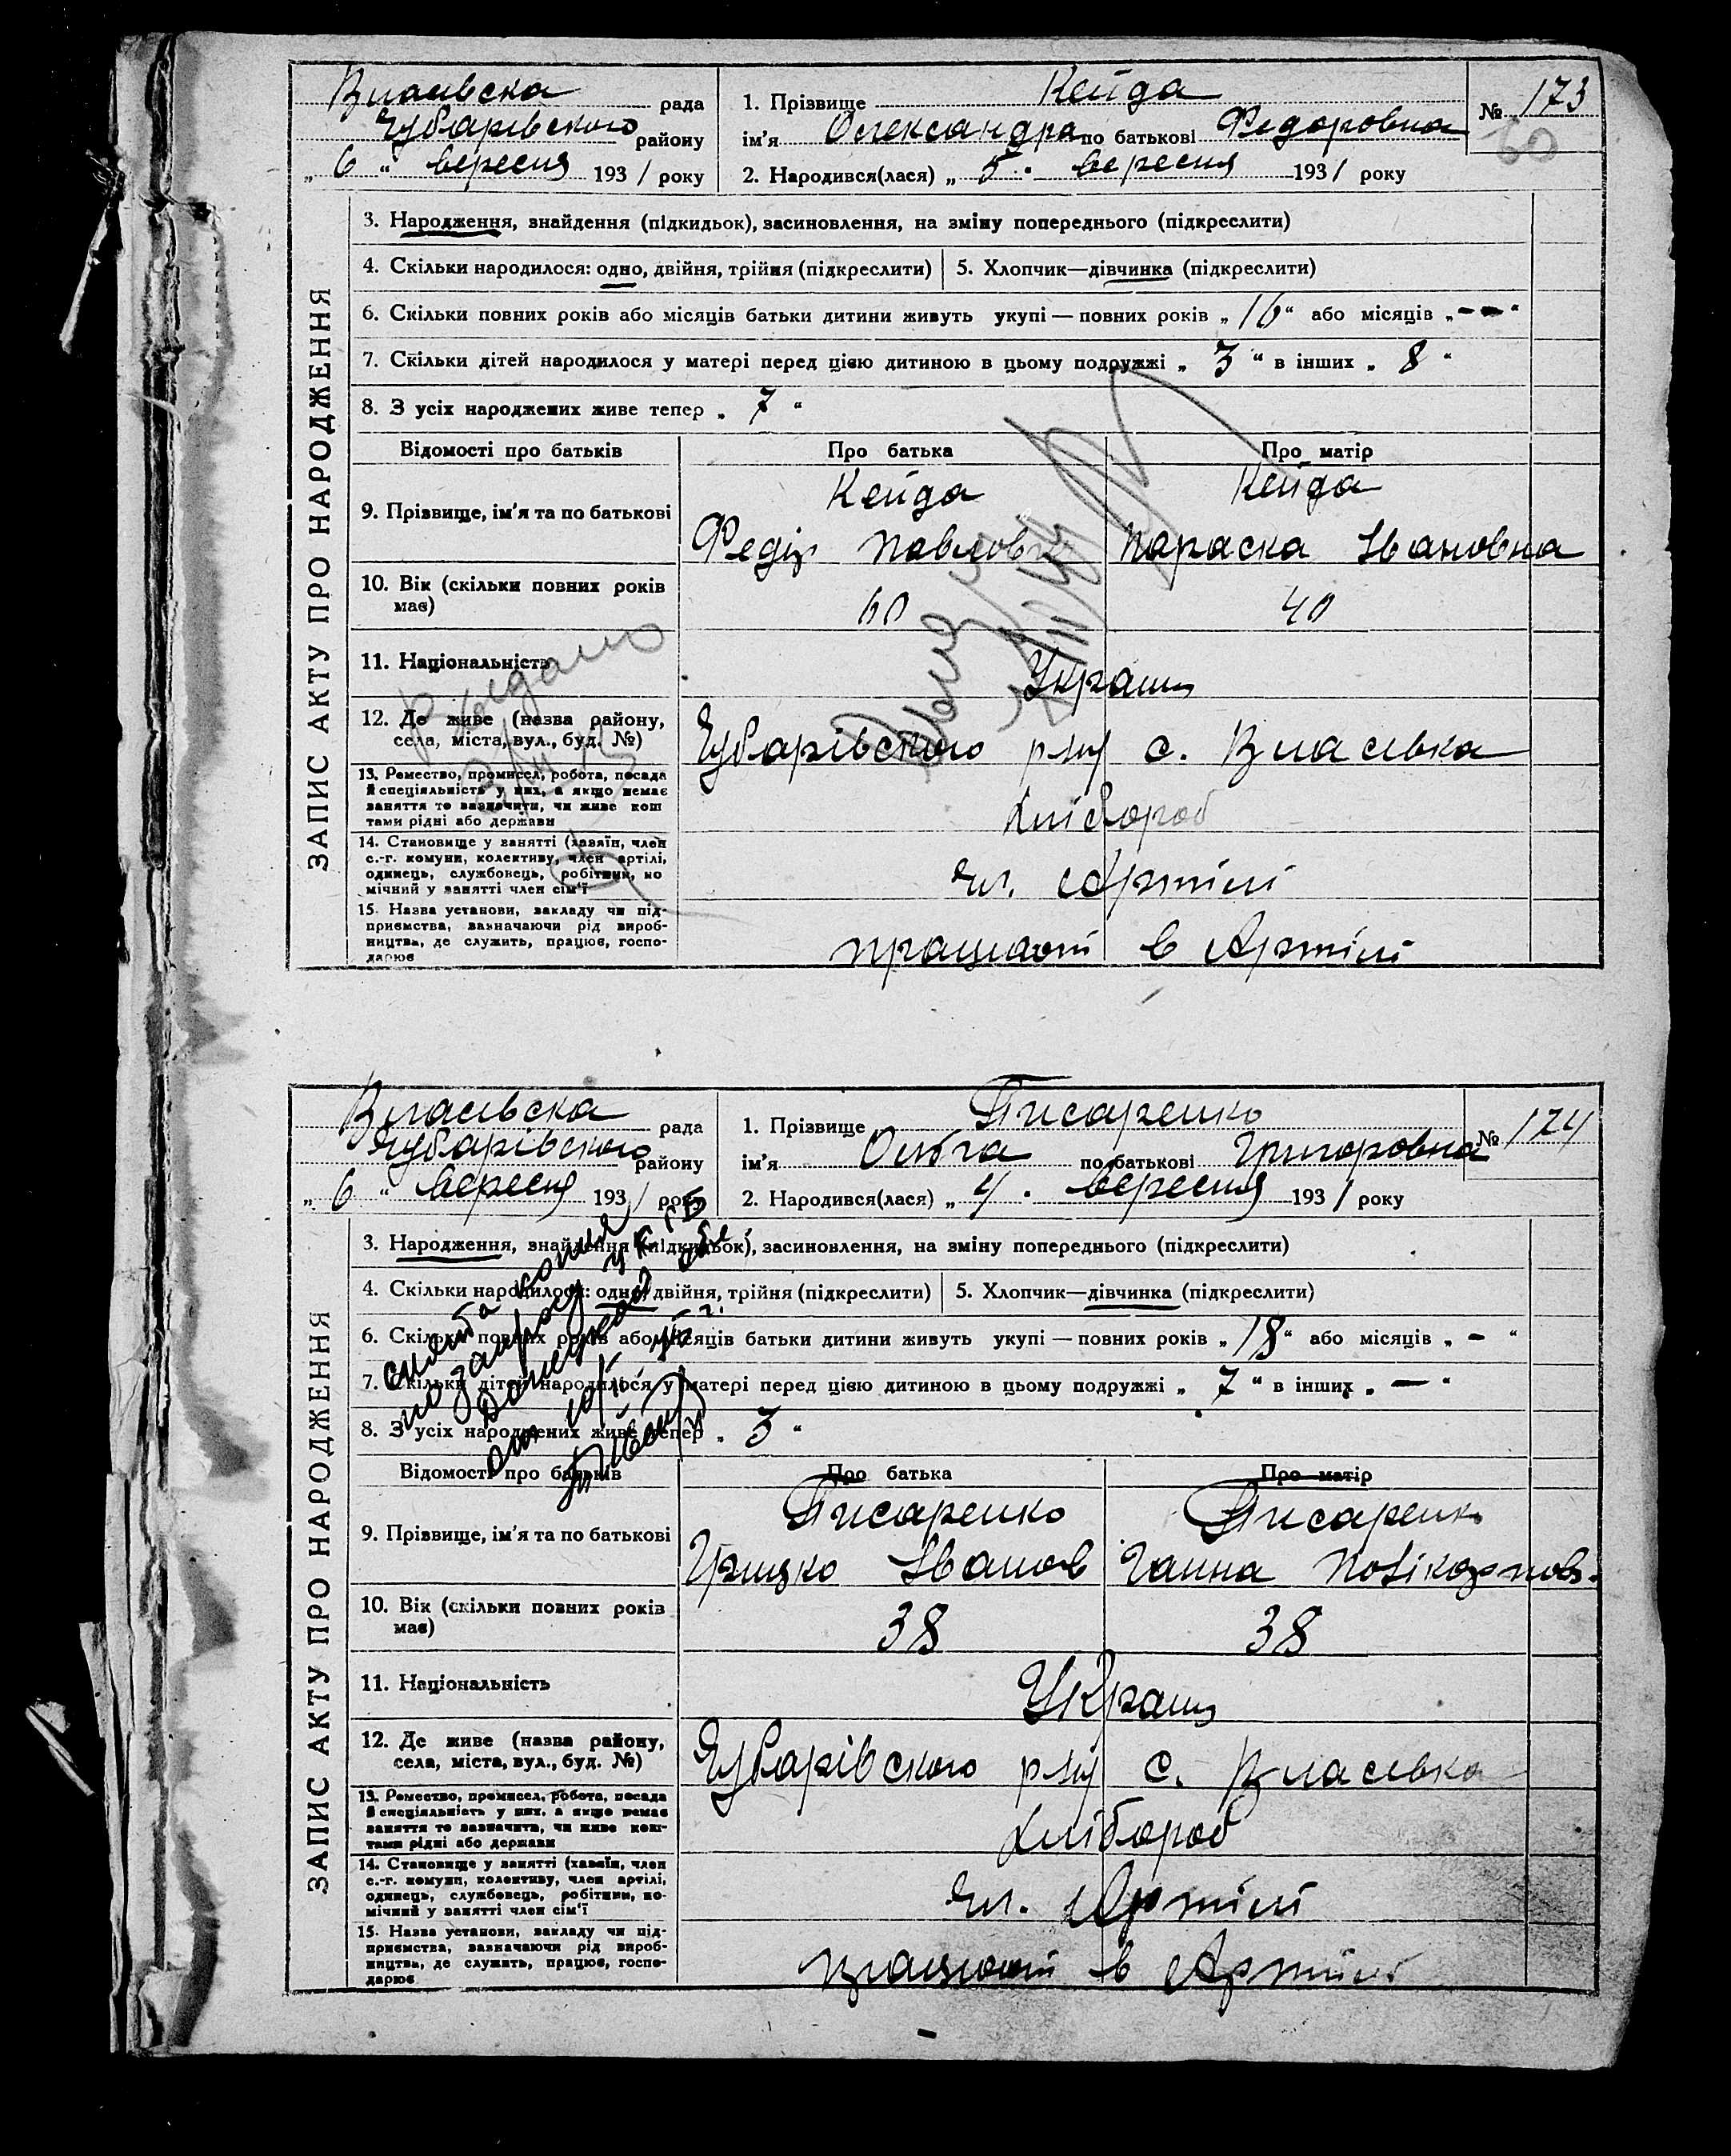 Власівска рада
Чубарівського району
„ 6 “ вересня 1931 року
1. Прізвище Кейда
ім'я Олександра по батькові Федоровна
2. Народився(лася) „ 5 “ вересня 1931 року
№ 173
60
ЗАПИС АКТУ ПРО НАРОДЖЕННЯ
3. Народження, знайдення (підкидьок), засиновлення, на зміну попереднього (підкреслити)
4. Скільки народилося: одно, двійня, трійня (підкреслити) 5. Хлопчик—дівчинка (підкреслити)
6. Скільки повних років або місяців батьки дитини живуть укупі — повних років „ 16 “ або місяців „ — “
7. Скільки дітей народилося у матері перед цією дитиною в цьому подружжі „ 3 “ в інших „ 8 “
8. З усіх народжених живе тепер „ 7 “
Відомості про батьків Про батька Про матір
9. Прізвище, ім'я та по батькові
Кейда Кейда
Федір Павлович Параска Івановна
10. Вік (скільки повних років має) 60 40
11. Національність Українц
12. Де живе (назва району, села, міста, вул., буд. №)
Чубарівського р-ну с. Власівка
13. Ремество, промисел, робота, посада й спеціяльність у них, а якщо немає заняття то вазначити, чи живе коштами рідні або держави
хлібороб
14. Становище у занятті (хазяїн, член с.-г. комуни, колективу, член артілі, одинець, службовець, робітник, помічний у занятті член сім'ї
чл. Артілі
15. Назва установи, закладу чи підприємства, вазначаючи рід виробництва, де служить, працює, господарює
працюют в Артілі
Видано
Власівска рада
Чубарівського району
„ 6 “ вересня 1931 року
1. Прізвище Писаренко
ім'я Ольга по батькові Григоровна
2. Народився(лася) „ 4 “ вересня 1931 року
№ 174
ЗАПИС АКТУ ПРО НАРОДЖЕННЯ
3. Народження, знайдення (підкидьок), засиновлення, на зміну попереднього (підкреслити)
4. Скільки народилося: одно, двійня, трійня (підкреслити) 5. Хлопчик—дівчинка (підкреслити)
6. Скільки повних років або місяців батьки дитини живуть укупі — повних років „ 18 “ або місяців „ — “
7. Скільки дітей народилося у матері перед цією дитиною в цьому подружжі „ 7 “ в інших „ — “
8. З усіх народжених живе тепер „ 3 “
снята копия
по запросу УКГБ
Донецкой обл
Відомості про батьків Про батька Про матір
9. Прізвище, ім'я та по батькові
Писаренко Писаренк
Грицко Іванов Ганна Полікарпов.
10. Вік (скільки повних років має) 38 38
11. Національність Українц
12. Де живе (назва району, села, міста, вул., буд. №)
Чубарівського р-ну с. Власівка
13. Ремество, промисел, робота, посада й спеціяльність у них, а якщо немає заняття то вазначити, чи живе коштами рідні або держави
хлібороб
14. Становище у занятті (хазяїн, член с.-г. комуни, колективу, член артілі, одинець, службовець, робітник, помічний у занятті член сім'ї
чл. Артілі
15. Назва установи, закладу чи підприємства, вазначаючи рід виробництва, де служить, працює, господарює
працюют в Артілі